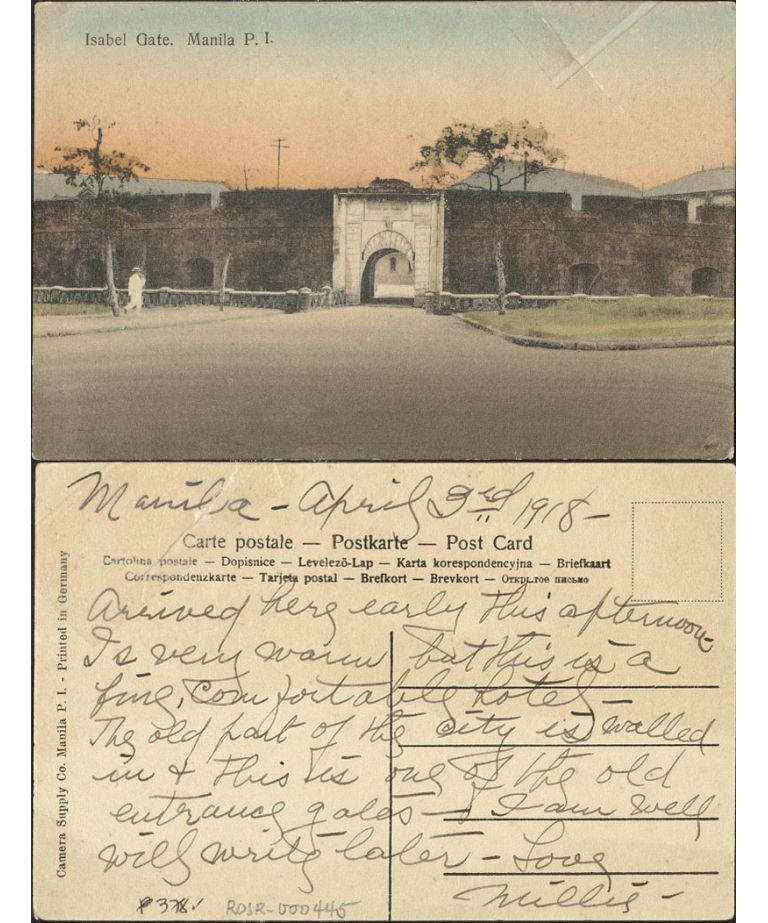 Isabel Gate. Manila P. I.
Manila - April 3rd 1918 -
Carte postale — Postkarte — Post Card
Cartolina postale — Dopisnice — Levelező-Lap — Karta korespondencyjna — Briefkaart
Correspondenzkarte — Tarjeta postal — Brefkort — Brevkort — Открытое письмо
Arrived here early this afternoon
Is very warm but this is a
fine, comfortable hotel -
The old part of the city is walled
in & this is one of the old
entrance gates - I am well
will write later - Love
Millie -
Camera Supply Co. Manila P. I. - Printed in Germany
P378.
RDSR-000445